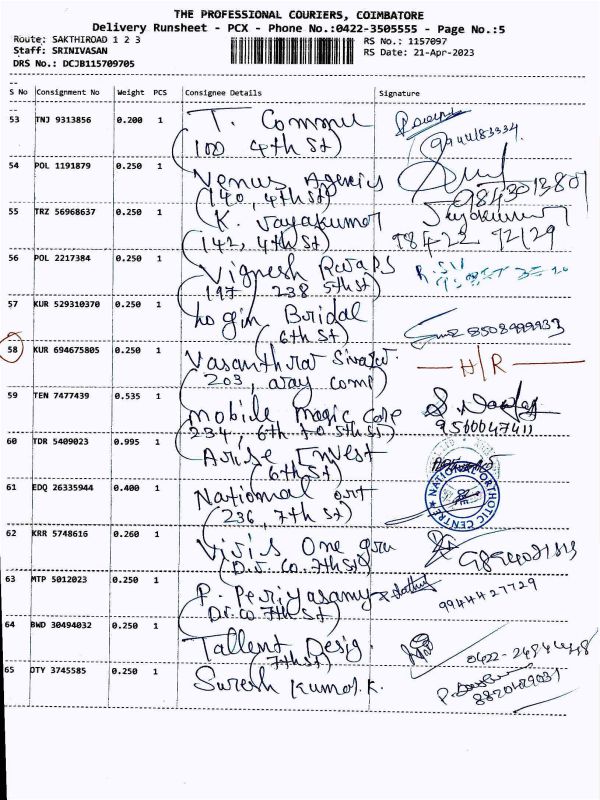 THE PROFESSIONAL COURIERS, COIMBATORE
Delivery Runsheet - PCX - Phone No.:0422-3505555 - Page No.:5
Route: SAKTHIROAD 1 2 3
RS No.: 1157097
Staff: SRINIVASAN
RS Date: 21-Apr-2023
DRS No.: DCJB115709705
S No Consignment No Weight PCS Consignee Details Signature
53 TNJ 9313856 0.200 1 T. Commu
(100 4th St)
9944183334
54 POL 1191879 0.250 1 Venus Agencies
(140, 4th St)
9843013807
55 TRZ 56968637 0.250 1 K. Jayakumar
(142, 4th St)
Jayakumar
98422 92129
56 POL 2217384 0.250 1 Vignesh
(197 / 238 5th St)
57 KUR 529310370 0.250 1 Login Bridal
(6th St)
8508999933
58 KUR 694675805 0.250 1 Vasanthra
(203, comp)
- H/R -
59 TEN 7477439 0.535 1 Mobile Magic Care
(234, 6th to 5th St)
9500047411
60 TDR 5409023 0.995 1 Arise Invest
(6th St)
61 EDQ 26335944 0.400 1 National ort
(236, 7th St)
NATIONAL ORTHOTIC CENTRE
62 KRR 5748616 0.260 1 One
(D.r. Co. 7th St)
63 MTP 5012023 0.250 1 P. Periyasamy
(Dr. co 7th St)
9944427729
64 BWD 30494032 0.250 1 Tallent Desig.
(7th St)
65 OTY 3745585 0.250 1 Suresh Kumar. K.